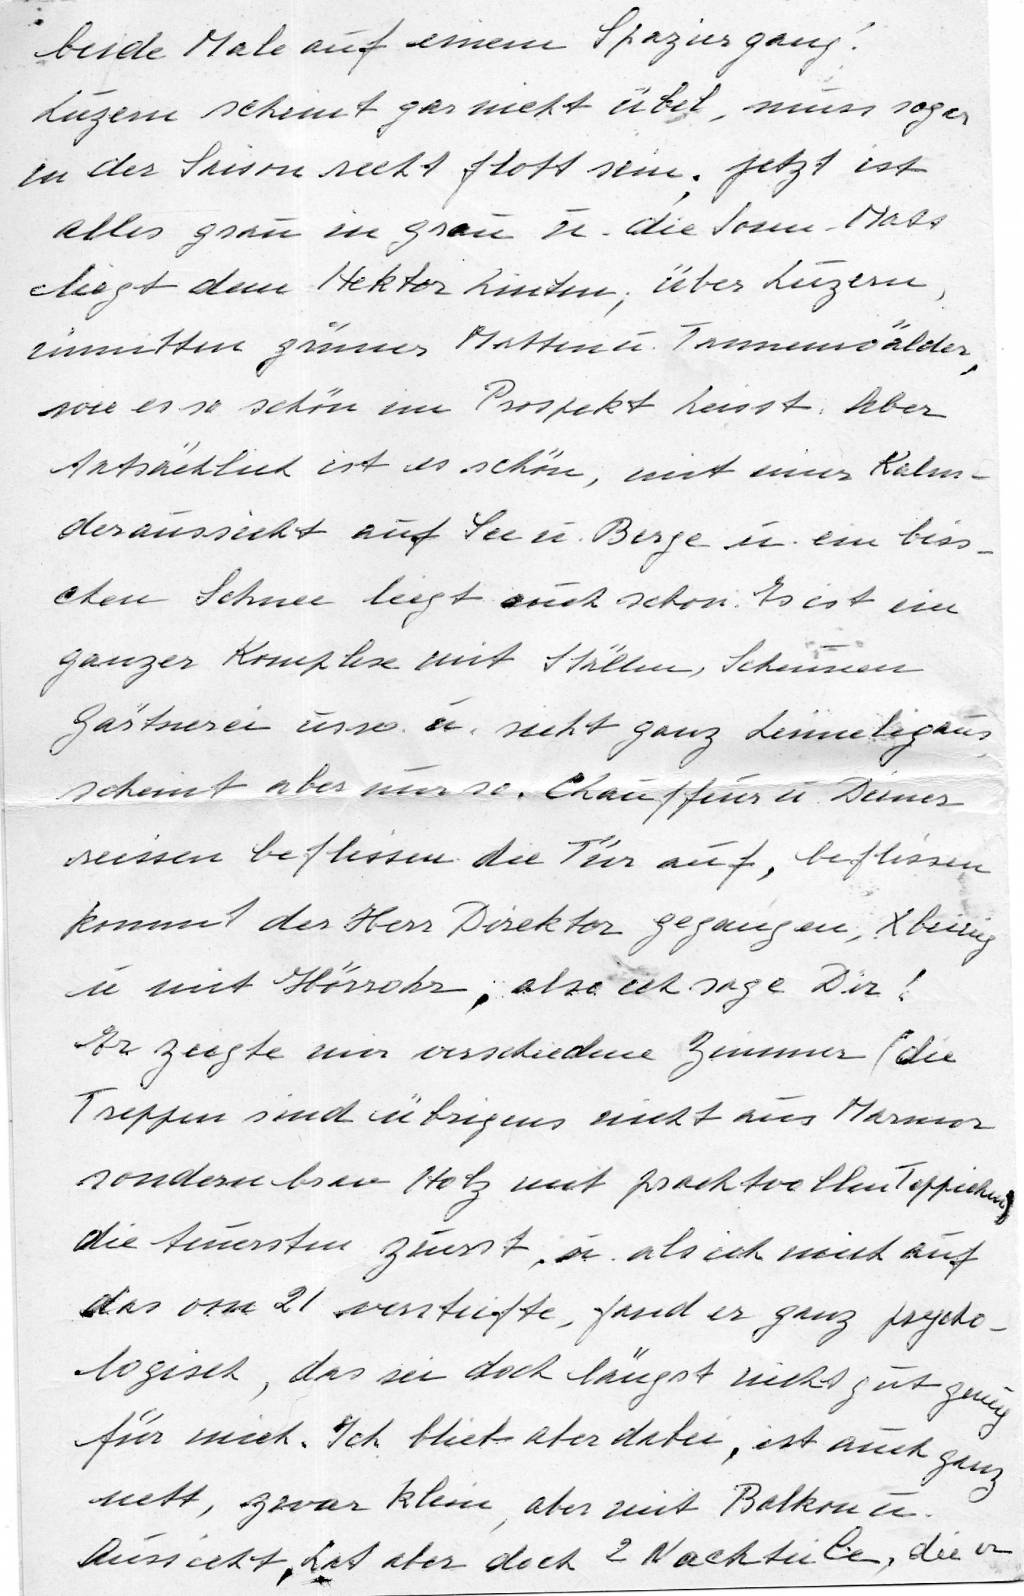 beide Male auf einem Spaziergang!
Luzern scheint gar nicht übel, muss sogar
in der Saison recht flott sein. Jetzt ist
alles grau in grau u. die Sonn-Matt
liegt dem Hektor hinten, über Luzern,
inmitten grüner Matten u. Tannenwälder,
wie es so schön im Prospekt heisst. Aber
tatsächlich ist es schön, mit einer Kalen-
deraussicht auf See u. Berge u. ein biss-
chen Schnee liegt auch schon. Es ist ein
ganzer Komplex mit Ställen, Scheunen
Gärtnerei usw. u. sieht ganz heimelig aus,
scheint aber nur so. Chauffeur u. Diener
reissen beflissen die Tür auf, beflissen
kommt der Herr Direktor gegangen, Xbeinig
u mit Hörrohr, also ich sage Dir!
Er zeigte mir verschiedene Zimmer (die
Treppen sind übrigens nicht aus Marmor
sondern brav Holz mit prachtvollen Teppichen)
die teuersten zuerst, u. als ich mich auf
das von 21 versteifte, fand er ganz psycho-
logisch, das sei doch längst nicht gut genug
für mich. Ich blieb aber dabei, ist auch ganz
nett, zwar klein, aber mit Balkon u.
Aussicht, hat aber doch 2 Nachteile, die